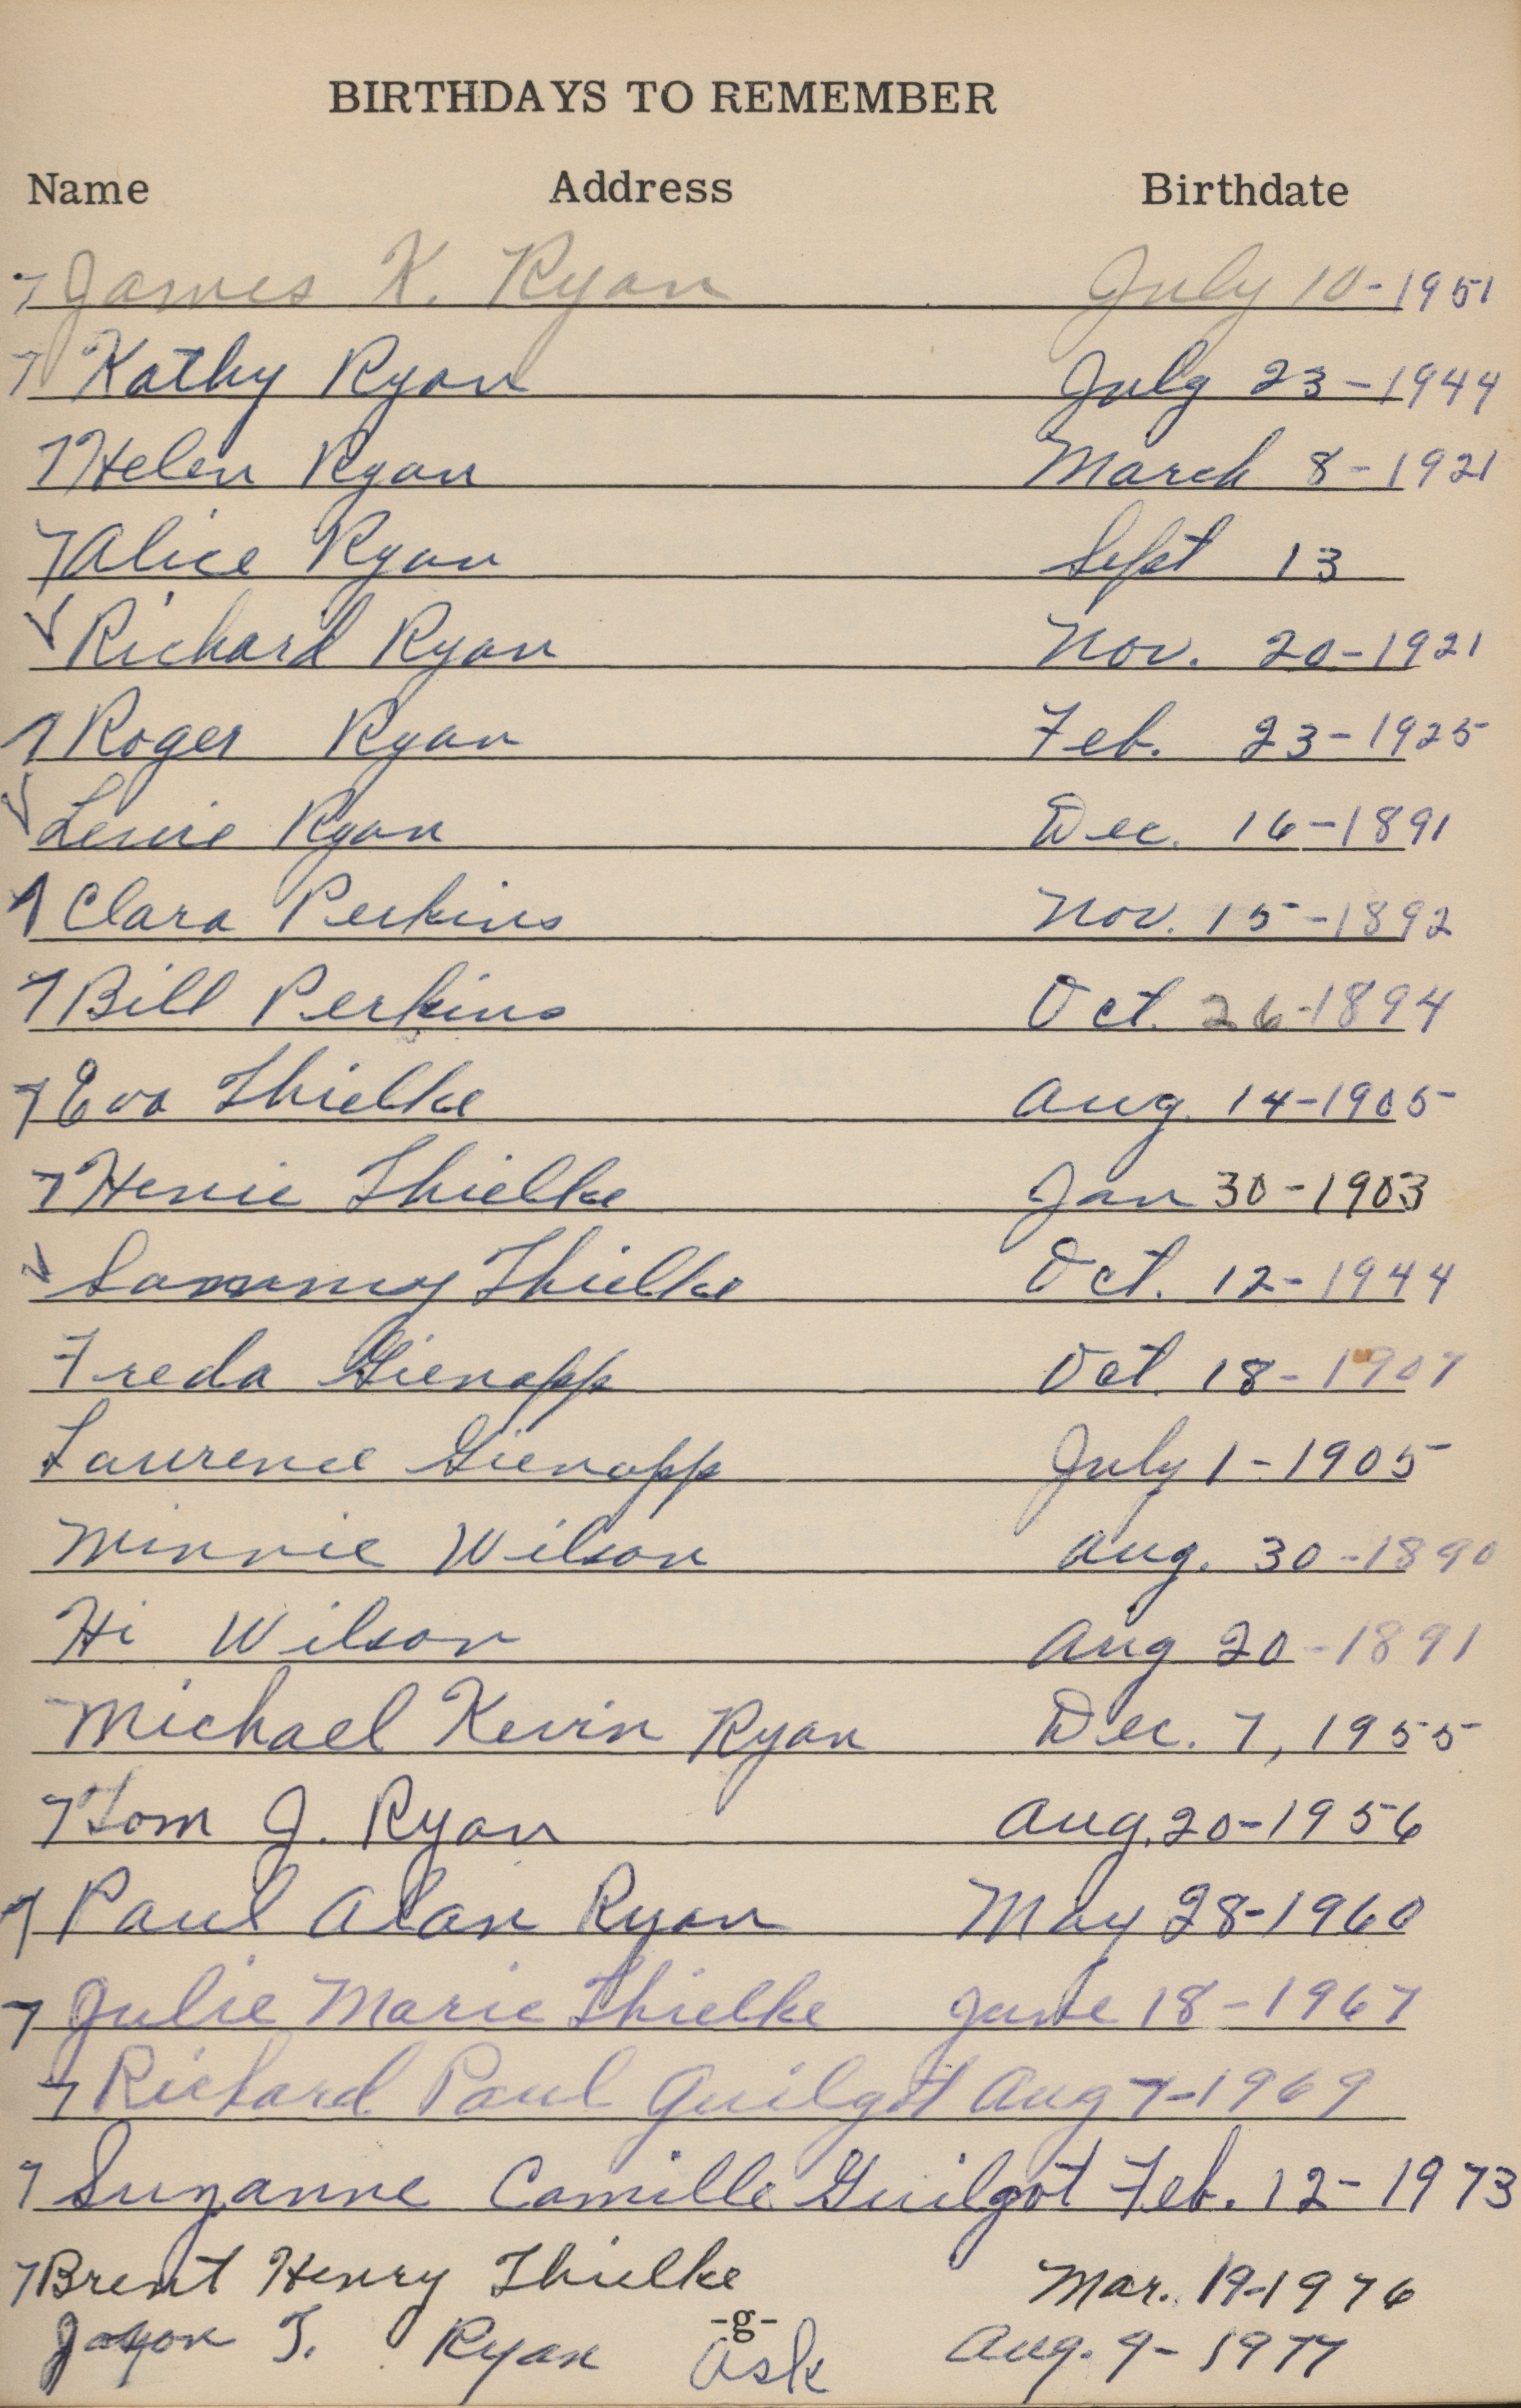 BIRTHDAYS TO REMEMBER
Name Address Birthdate
James K. Ryan July 10-1951
Kathy Ryan July 23-1944
Helen Ryan March 8-1921
Alice Ryan Sept 13
Richard Ryan Nov. 20-1921
Roger Ryan Feb. 23-1925
Ryan Dec. 16-1891
Clara Perkins Nov. 15-1892
Bill Perkins Oct. 26-1894
Eva Thielke Aug. 14-1905
Henie Thielke Jan 30-1903
Sammy Thielke Oct. 12-1944
Freda Gienapp Oct. 18-1907
Laurence Gienapp July 1-1905
Minnie Wilson Aug. 30-1890
Hi Wilson Aug 20-1891
Michael Kevin Ryan Dec. 7, 1955
Tom J. Ryan Aug. 20-1956
Paul Alan Ryan May 28-1960
Julie Marie Thielke June 18-1967
Richard Paul Guilgot Aug 7-1969
Suzanne Camille Guilgot Feb. 12-1973
Brent Henry Thielke Mar. 19-1976
-g-
Jason T. Ryan Ask Aug. 9-1977